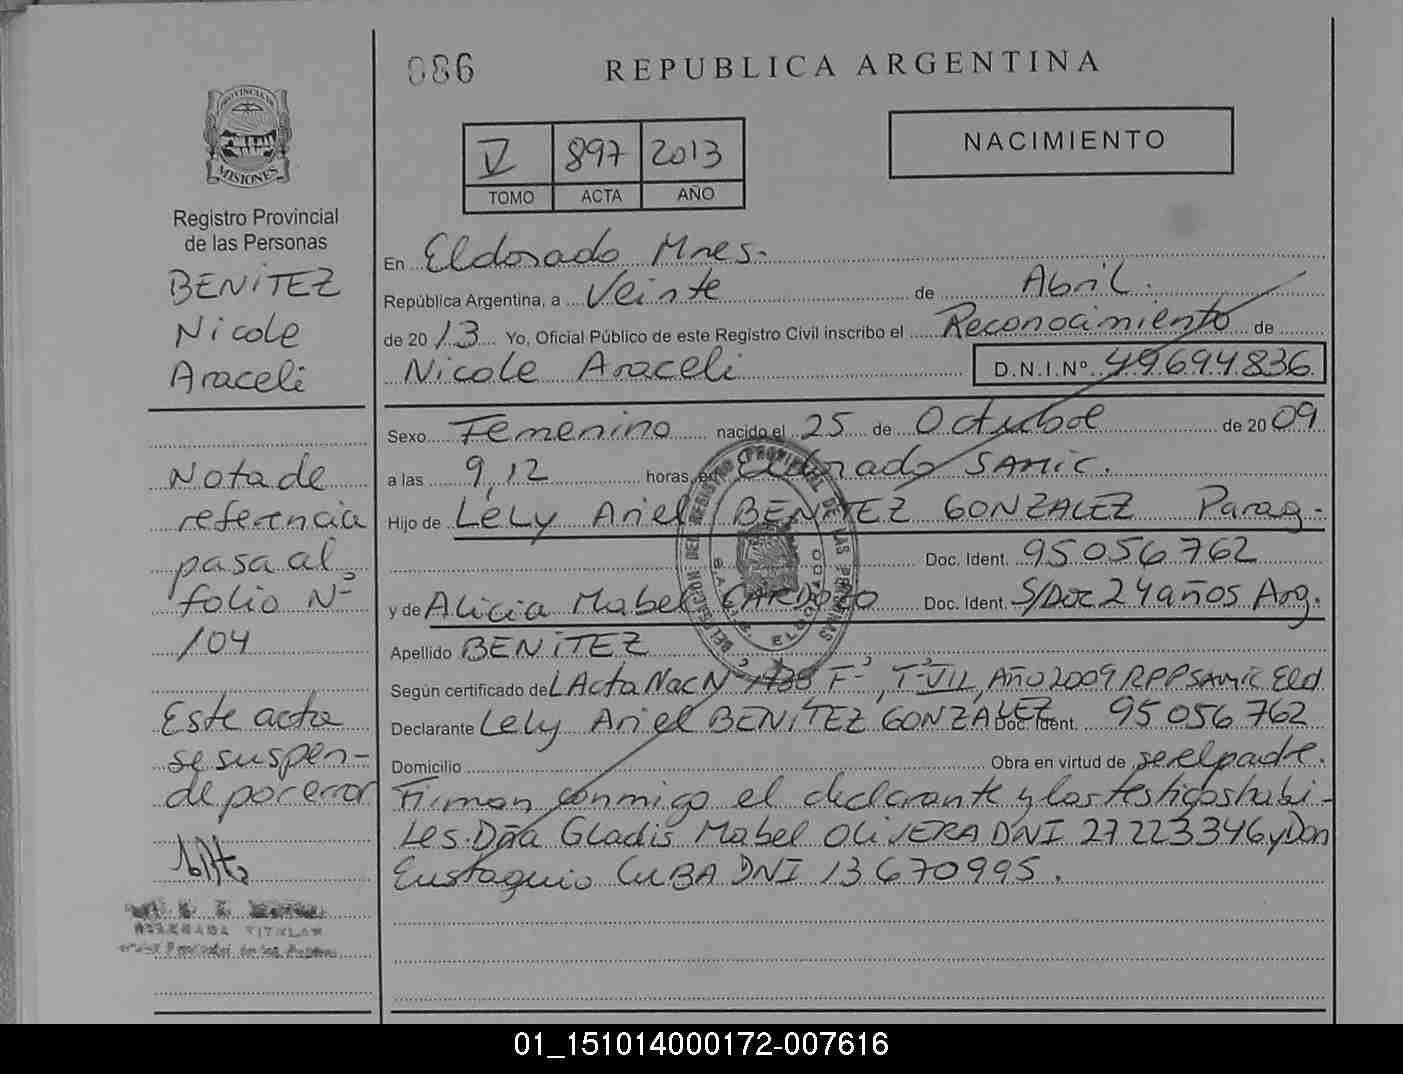 086
REPUBLICA ARGENTINA
PROVINCIA DE
MISIONES
V 897 2013
TOMO ACTA AÑO
NACIMIENTO
Registro Provincial
de las Personas
BENITEZ
Nicole
Araceli
Nota de
referencia
pasa al
folio Nº
104
Este acta
se suspen-
de por error
DELEGADA TITULAR
En Eldorado Mnes.
República Argentina, a Veinte de Abril.
de 2013 Yo, Oficial Público de este Registro Civil inscribo el Reconocimiento de
Nicole Araceli D.N.I.Nº 49694836
Sexo Femenino nacido el 25 de Octubre de 2009
a las 9,12 horas, en Eldorado SAMIC.
Hijo de Lely Ariel BENITEZ GONZALEZ Parag-
Doc. Ident. 95056762
y de Alicia Mabel CARDOZO Doc. Ident. S/Doc 24 años Arg.
Apellido BENITEZ
Según certificado de L Acta Nac Nº 1738 Fº , Tº VII, Año 2009 RPP SAMIC Eld
Declarante Lely Ariel BENITEZ GONZALEZ Doc. Ident. 95056762
Domicilio Obra en virtud de ser el padre.
Firman conmigo el declarante y los testigos habi-
les. Dña Gladis Mabel OLIVERA DNI 27223346 y Don
Eustaquio CUBA DNI 13670995.
DELEGACION DEL REGISTRO PROVINCIAL DE LAS PERSONAS
ELDORADO
01_151014000172-007616